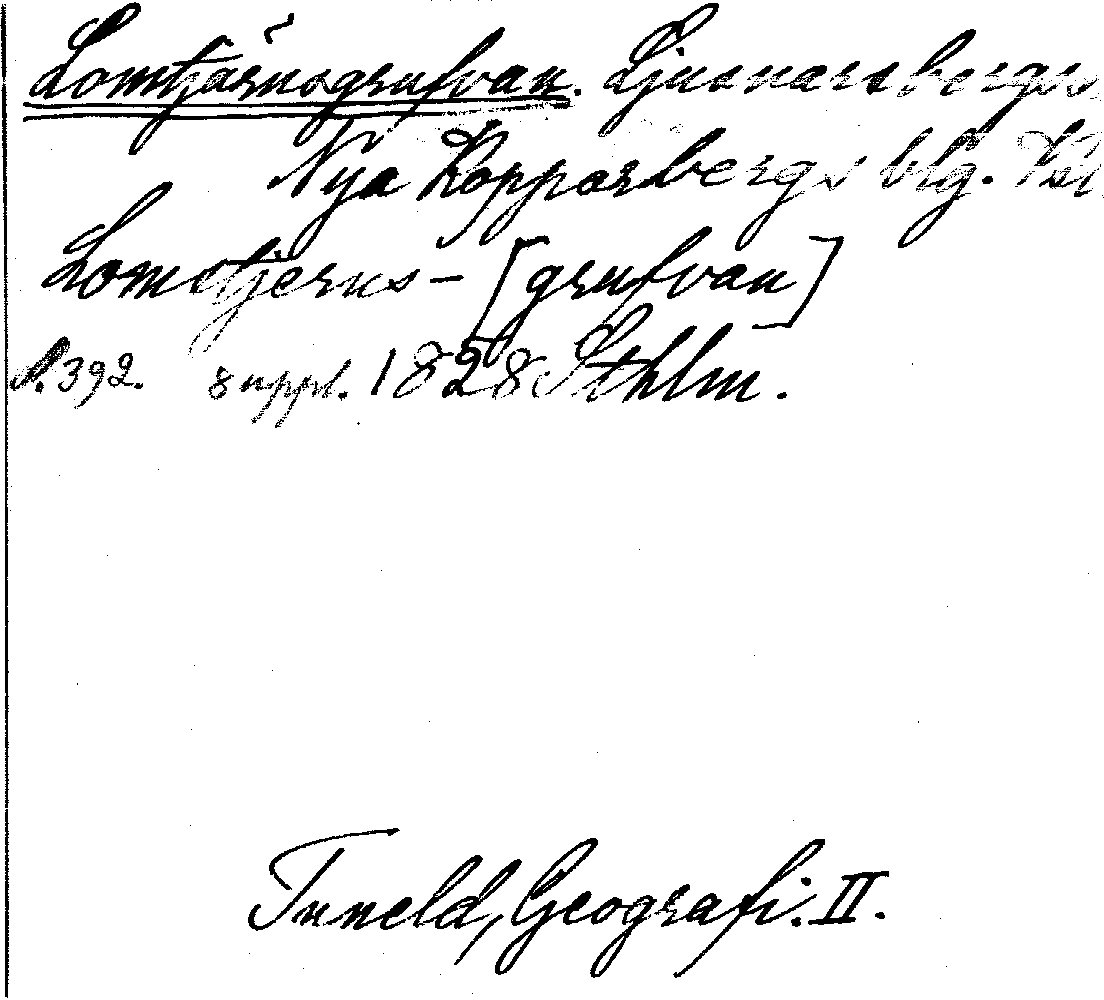 Lomtjärnsgrufvan. Ljusnarsbergs
Nya Kopparbergs blg.
Lomstjerns- [grufvan]
S. 392. suppl. 1828 Sthlm.
Tuneld, Geografi. II.